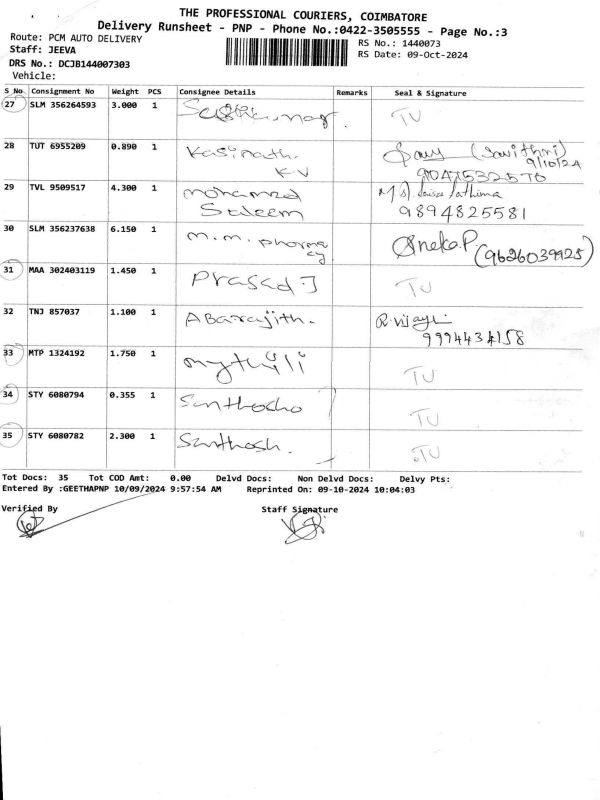 THE PROFESSIONAL COURIERS, COIMBATORE
Delivery Runsheet - PNP - Phone No.:0422-3505555 - Page No.:3
Route: PCM AUTO DELIVERY
RS No.: 1440073
Staff: JEEVA
RS Date: 09-Oct-2024
DRS No.: DCJB144007303
Vehicle:
S_No Consignment No Weight PCS Consignee Details Remarks Seal & Signature
27 SLM 356264593 3.000 1 TU
28 TUT 6955209 0.890 1 Kasinath. (Savithri)
K.V 9/10/24
29 TVL 9509517 4.300 1 mohamed
Saleem 9894825581
30 SLM 356237638 6.150 1 m.m. pharma Sneka.P
cy (9626039925)
31 MAA 302403119 1.450 1 Prasad.J TU
32 TNJ 857037 1.100 1 Abarajith. R.vijay
9994434158
33 MTP 1324192 1.750 1 mythili TU
34 STY 6080794 0.355 1 Santhosho TU
35 STY 6080782 2.300 1 Santhosh. TU
Tot Docs: 35 Tot COD Amt: 0.00 Delvd Docs: Non Delvd Docs: Delvy Pts:
Entered By :GEETHAPNP 10/09/2024 9:57:54 AM Reprinted On: 09-10-2024 10:04:03
Verified By Staff Signature